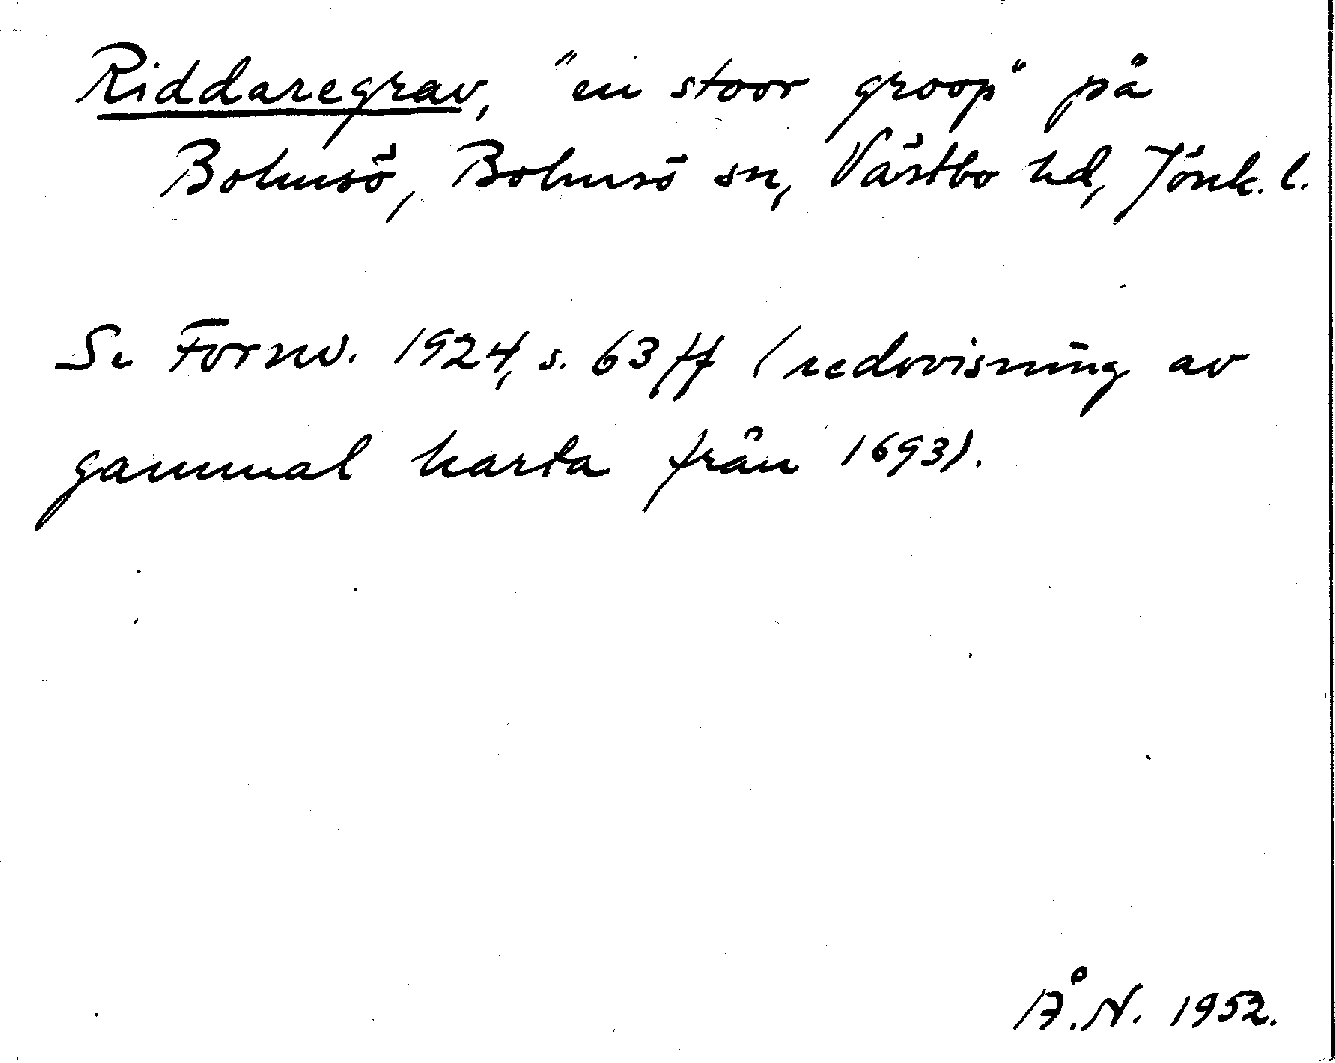 Riddaregrav, "en stoor groop" på
Bolmsö, Bolmsö sn, Västbo hd, Jönk. l.
Se Fornv. 1924, s. 63 ff (redovisning av
gammal karta från 1693).
Å.N. 1952.